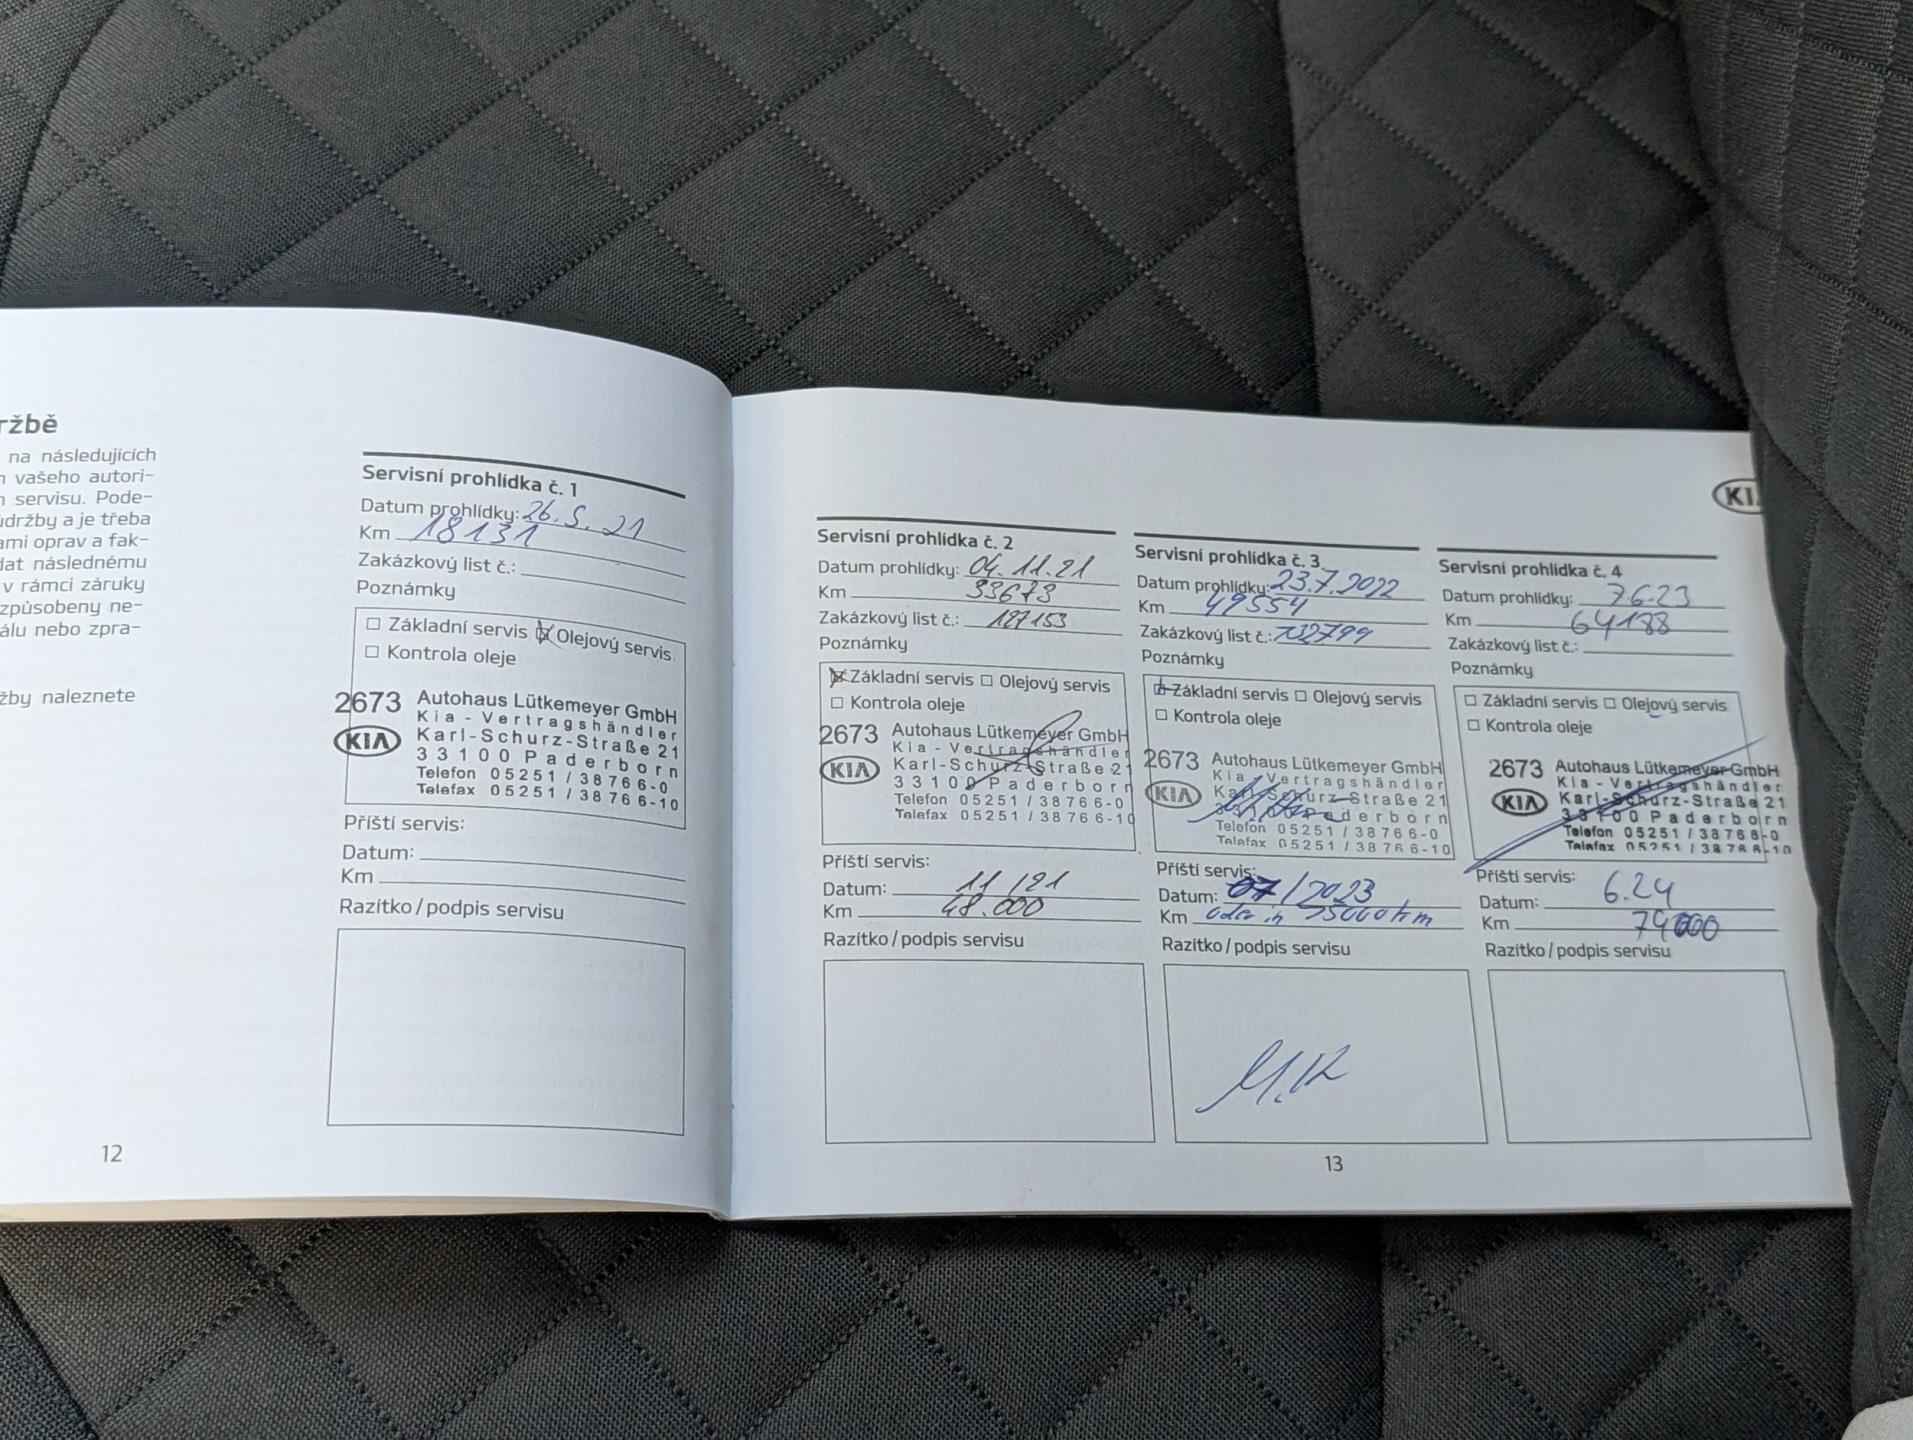 ržbě
na následujících
vašeho autori-
servisu. Pode-
údržby a je třeba
ami oprav a fak-
dat následnému
v rámci záruky
způsobeny ne-
álu nebo zpra-
žby naleznete
12
Servisní prohlídka č. 1
Datum prohlídky: 26.5.21
Km 18131
Zakázkový list č.:
Poznámky
Základní servis Olejový servis
Kontrola oleje
2673 Autohaus Lütkemeyer GmbH
Kia-Vertragshändler
KIA Karl-Schurz-Straße 21
33100 Paderborn
Telefon 05251/38766-0
Telefax 05251/38766-10
Příští servis:
Datum:
Km
Razítko/podpis servisu
KI
Servisní prohlídka č. 2
Datum prohlídky: 04.11.21
Km 33673
Zakázkový list č.: 127153
Poznámky
Základní servis Olejový servis
Kontrola oleje
2673 Autohaus Lütkemeyer GmbH
Kia-Vertragshändler
KIA Karl-Schurz-Straße 21
33100 Paderborn
Telefon 05251/38766-0
Telefax 05251/38766-10
Příští servis:
Datum: 11/21
Km 48.000
Razítko/podpis servisu
Servisní prohlídka č. 3
Datum prohlídky: 23.7.2022
Km 49554
Zakázkový list č.: 132799
Poznámky
Základní servis Olejový servis
Kontrola oleje
2673 Autohaus Lütkemeyer GmbH
Kia-Vertragshändler
KIA Karl-Schurz-Straße 21
Paderborn
Telefon 05251/38766-0
Telefax 05251/38766-10
Příští servis:
Datum: 07/2023
Km oder in 15000 km
Razítko/podpis servisu
M.K
Servisní prohlídka č. 4
Datum prohlídky: 7.6.23
Km 64188
Zakázkový list č.:
Poznámky
Základní servis Olejový servis
Kontrola oleje
2673 Autohaus Lütkemeyer GmbH
Kia-Vertragshändler
KIA Karl-Schurz-Straße 21
33100 Paderborn
Telefon 05251/38766-0
Telefax 05251/38766-10
Příští servis:
Datum: 6.24
Km 79000
Razítko/podpis servisu
13